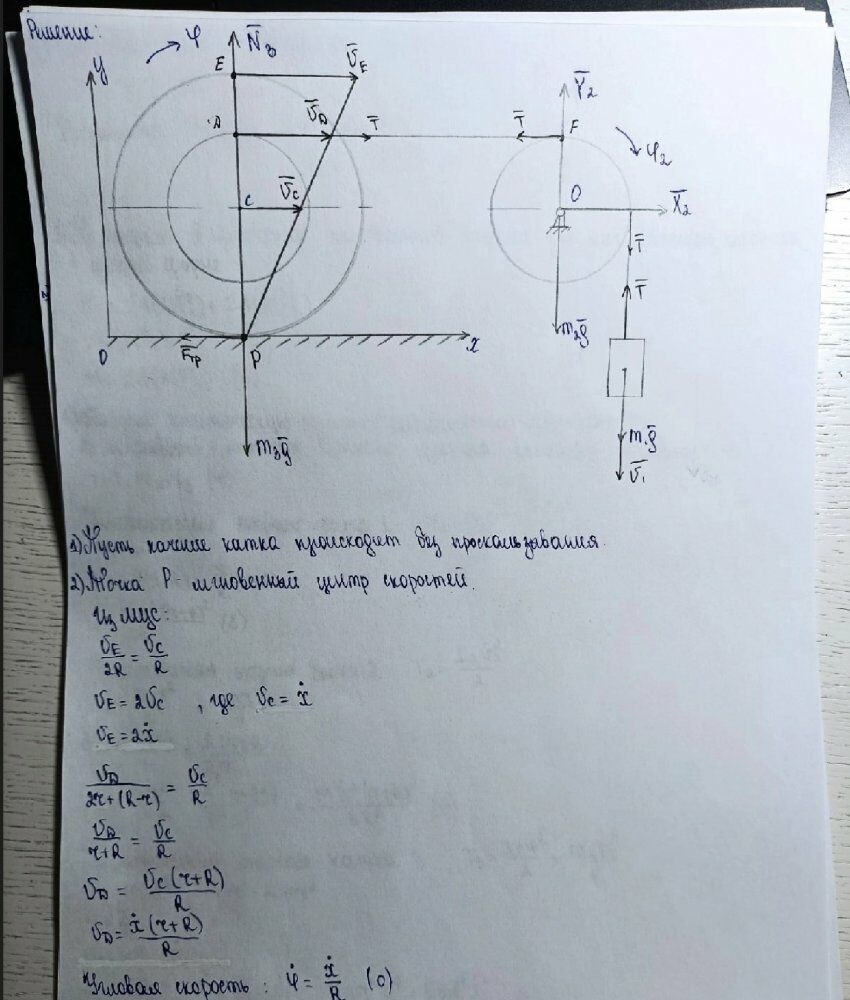 Решение:
φ
N̄₃
y
E
V̄_E
Д
V̄_D
T̄
C
V̄_C
0
F̄тр
P
x
m₃ḡ
Ȳ₂
T̄
F
φ₂
O
X̄₂
T̄
T̄
m₂ḡ
m₁ḡ
V̄₁
1) Пусть качение катка происходит без проскальзывания.
2) Точка P - мгновенный центр скоростей.
Из МЦС:
V_E/2R = V_C/R
V_E = 2V_C , где V_C = ẋ
V_E = 2ẋ
V_D/(2r+(R-r)) = V_C/R
V_D/(r+R) = V_C/R
V_D = V_C(r+R)/R
V_D = ẋ(r+R)/R
Угловая скорость: φ̇ = ẋ/R (0)